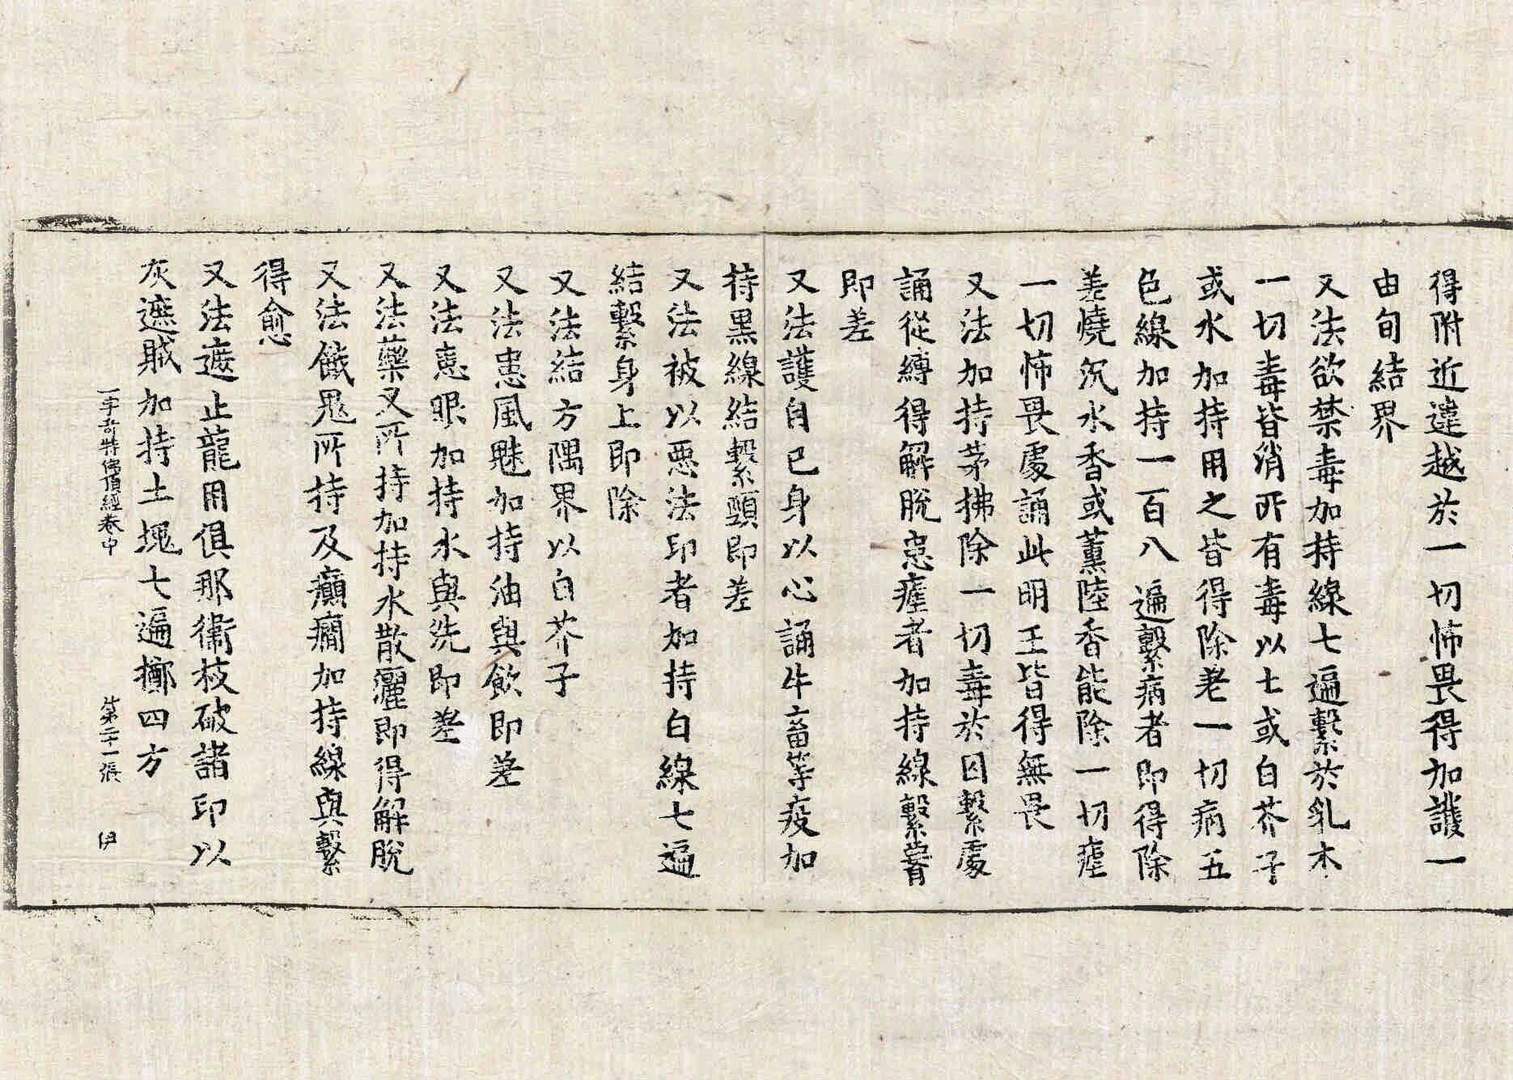 得附近違越於一切怖畏得加護一
由旬結界
又法欲禁毒加持線七遍繫於乳木
一切毒皆消所有毒以七或白芥子
或水加持用之皆得除老一切病五
色線加持一百八遍繫病者即得除
差燒沉水香或薰陸香能除一切瘧
一切怖畏處誦此明王皆得無畏
又法加持茅拂除一切毒於囚繫處
誦從縛得解脫患瘧者加持線繫臂
即差
又法護自己身以心誦牛畜等疫加
持黑線結繫頸即差
又法被以惡法印者加持白線七遍
結繫身上即除
又法結方隅界以白芥子
又法患風魅加持油與飲即差
又法患眼加持水與洗即差
又法藥叉所持加持水散灑即得解脫
又法飢鬼所持及癲癇加持線與繫
得愈
又法遮止龍用俱那衞枝破諸印以
灰遮賊加持土塊七遍擲四方
一字奇特佛頂經卷中 第二十一張 伊